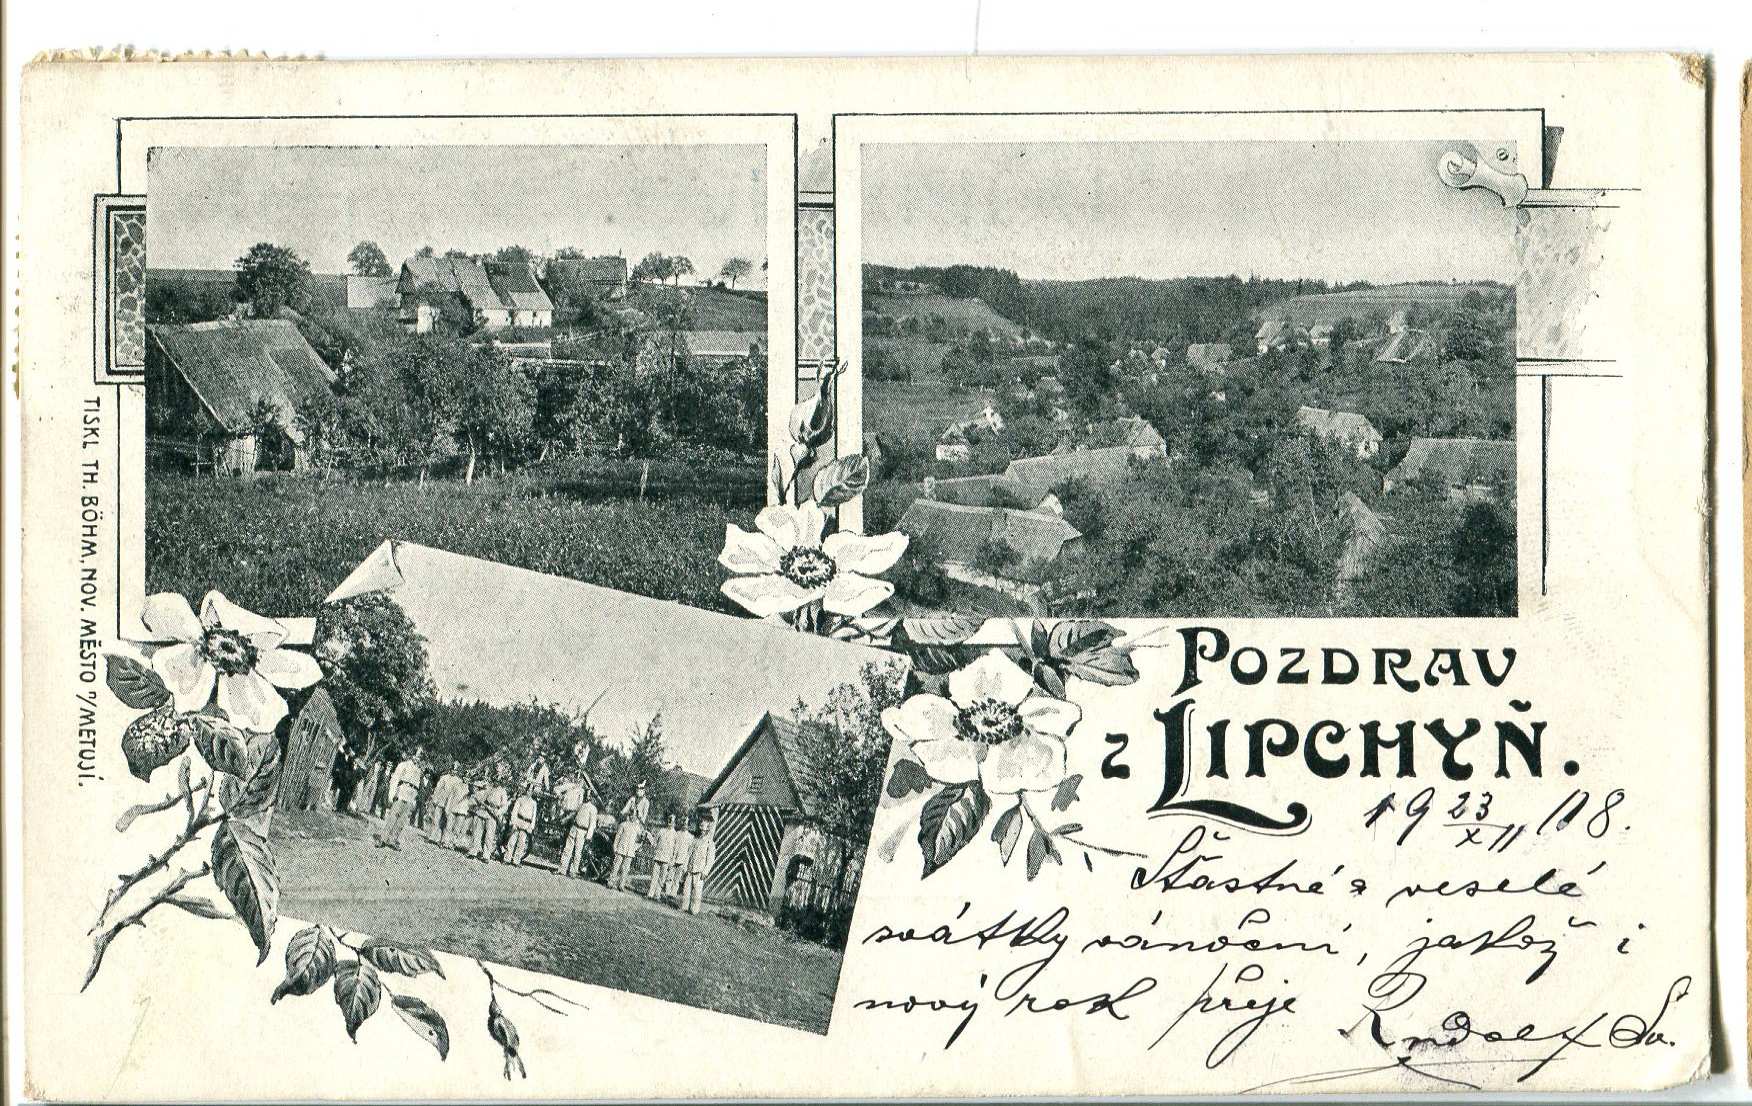 POZDRAV
Z LIPCHYŇ.
19 23/XII 08.
Šťastné a veselé
svátky vánoční, jakož i
nový rok přeje
Rudolf Sv.
TISKL TH. BÖHM, NOV. MĚSTO n/METUJÍ.